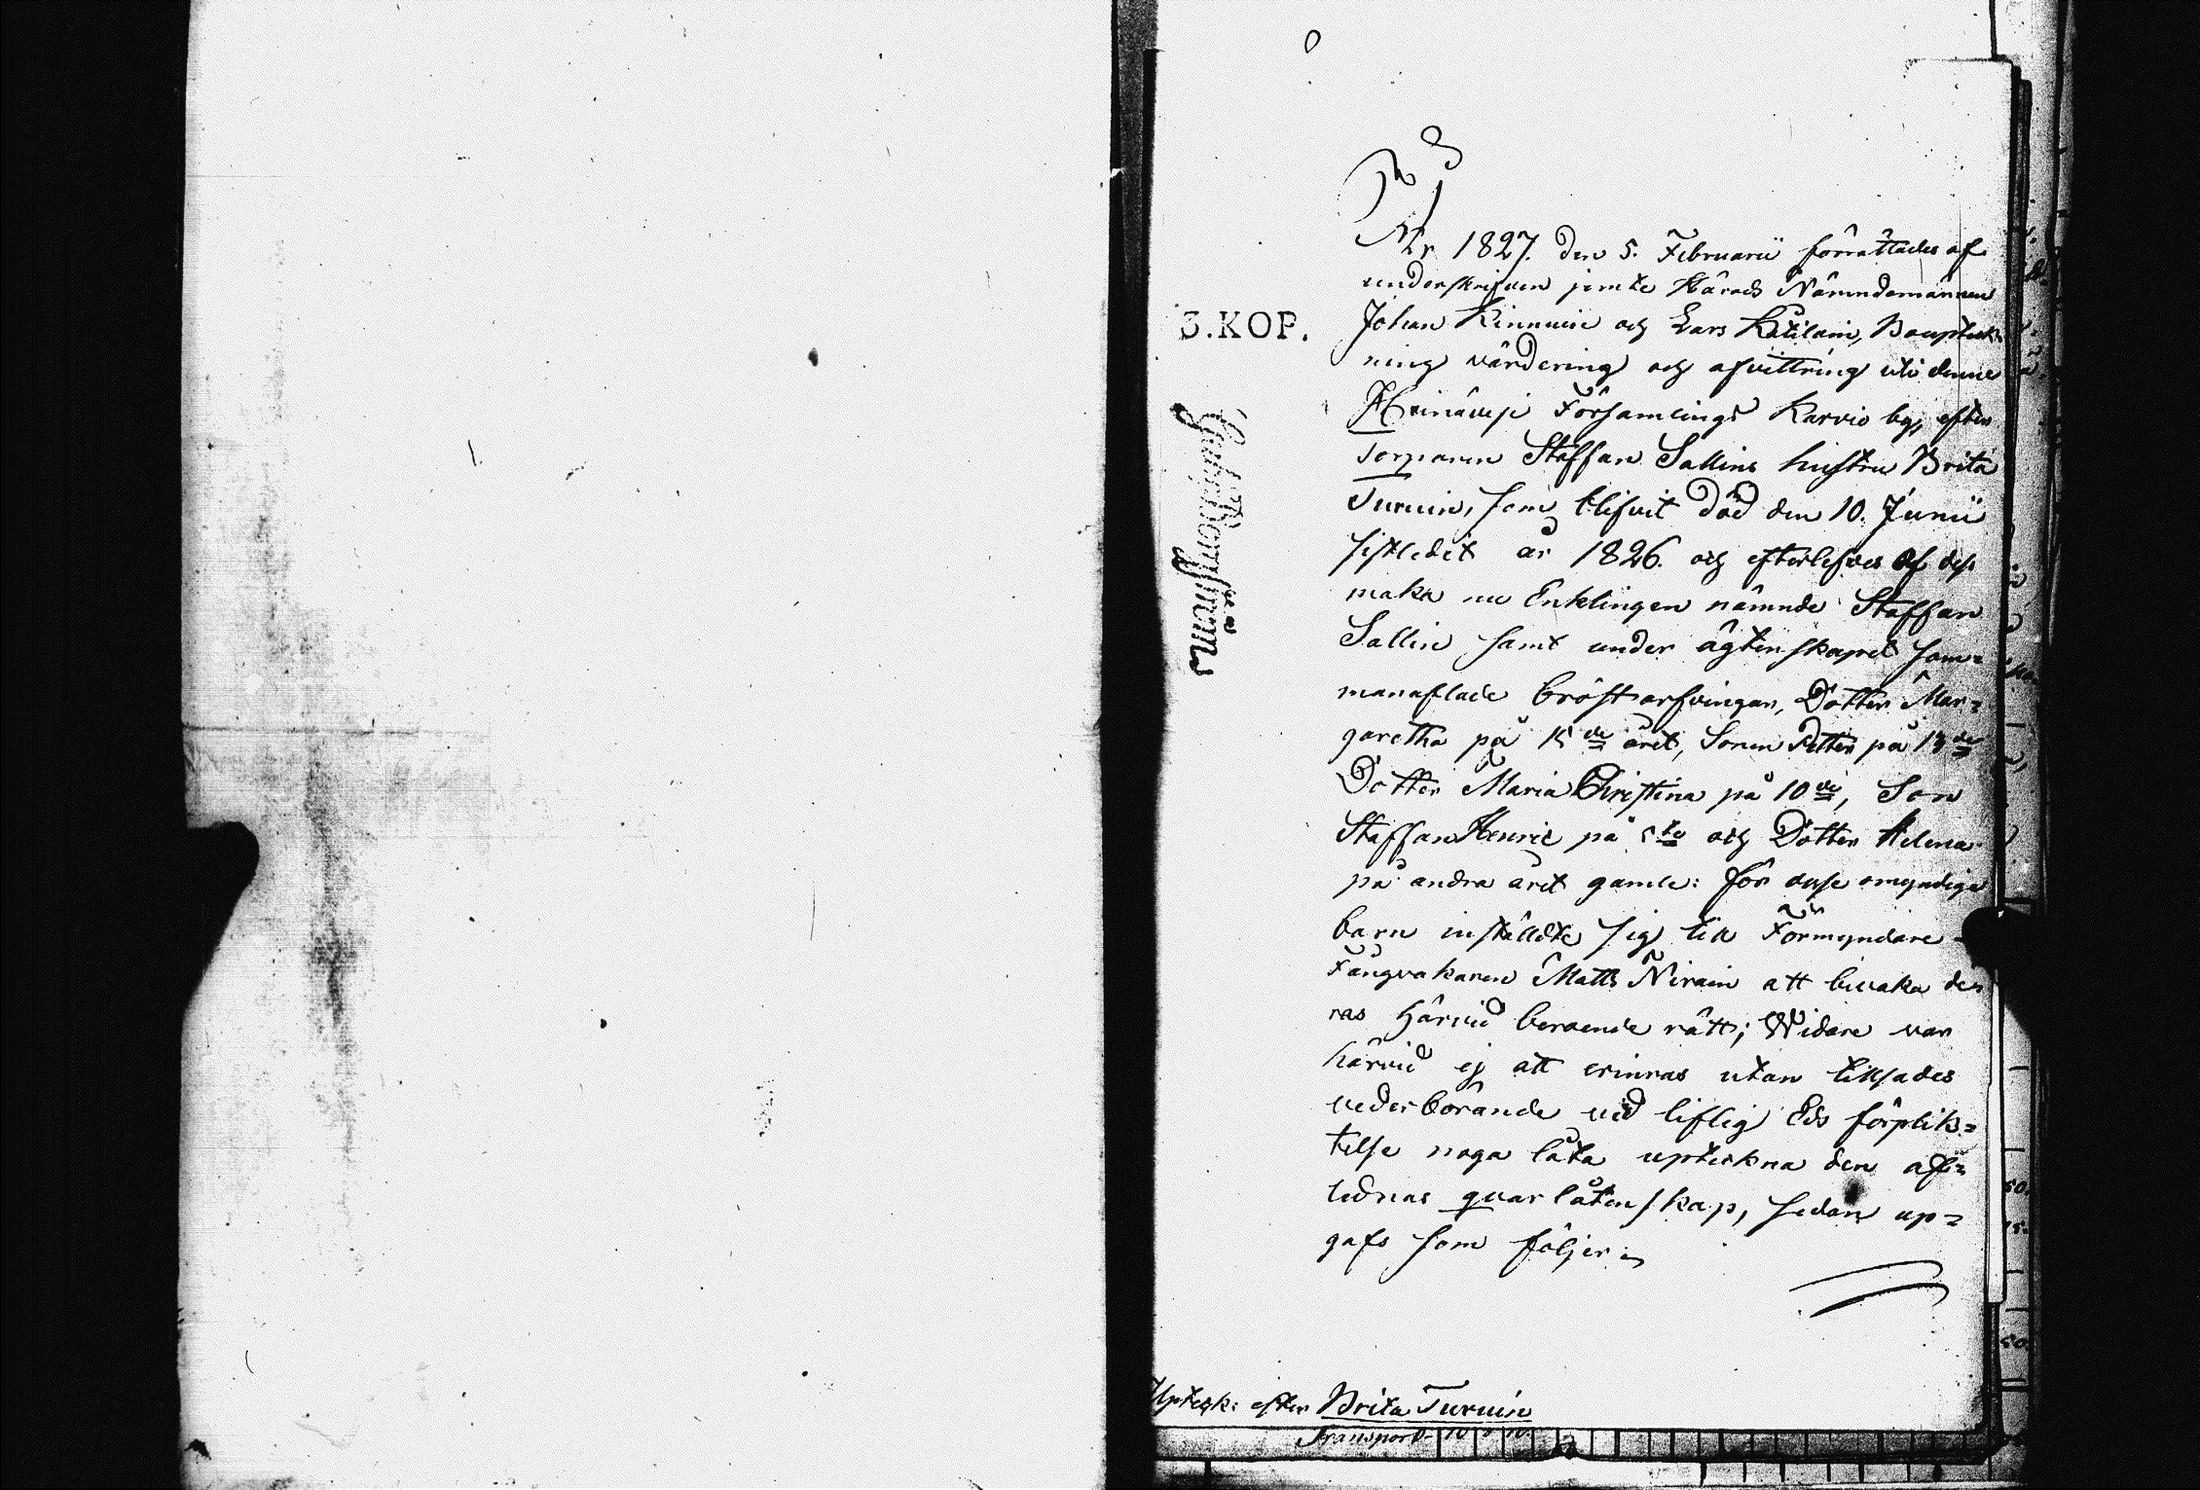 År 1827. den 5. Februarii förrättades af
underskrifven jemte Härads Nämndemännen
3.KOP.
Johan Kinnuin och Lars Katilain, Bouptek
ning värdering och afvittring uti denne
Heinäwesi Församlings Karvio by, efter
Torparen Staffan Sallins hustru Brita
Turuin, som blifvit död den 10. Junii
sistledit år 1826. och efterlefves af des
maka nu Enklingen nämnde Staffan
Sallin samt under ägtenskapet sam=
manaflade bröstarfvingar, Dotter Mar=
garetha på 15de året, Sonen Petter på 13de
Dotter Maria Christina på 10de, Son
Staffan Henric på 5te och Dotter Helena
på andra året gamle: för desse omyndige
barn instäldte sig till Förmyndare
Fångvaktaren Matts Nirain att bevaka de
ras härvid beroende rätt; Widare var
härvid ej att erinras utan tillsades
vederbörande vid liflig Eds förplik=
telse noga låta upteckna den af=
lednas quarlåtenskap, sedan up=
gafs som följer
Upteck: efter Brita Turuin
Transport